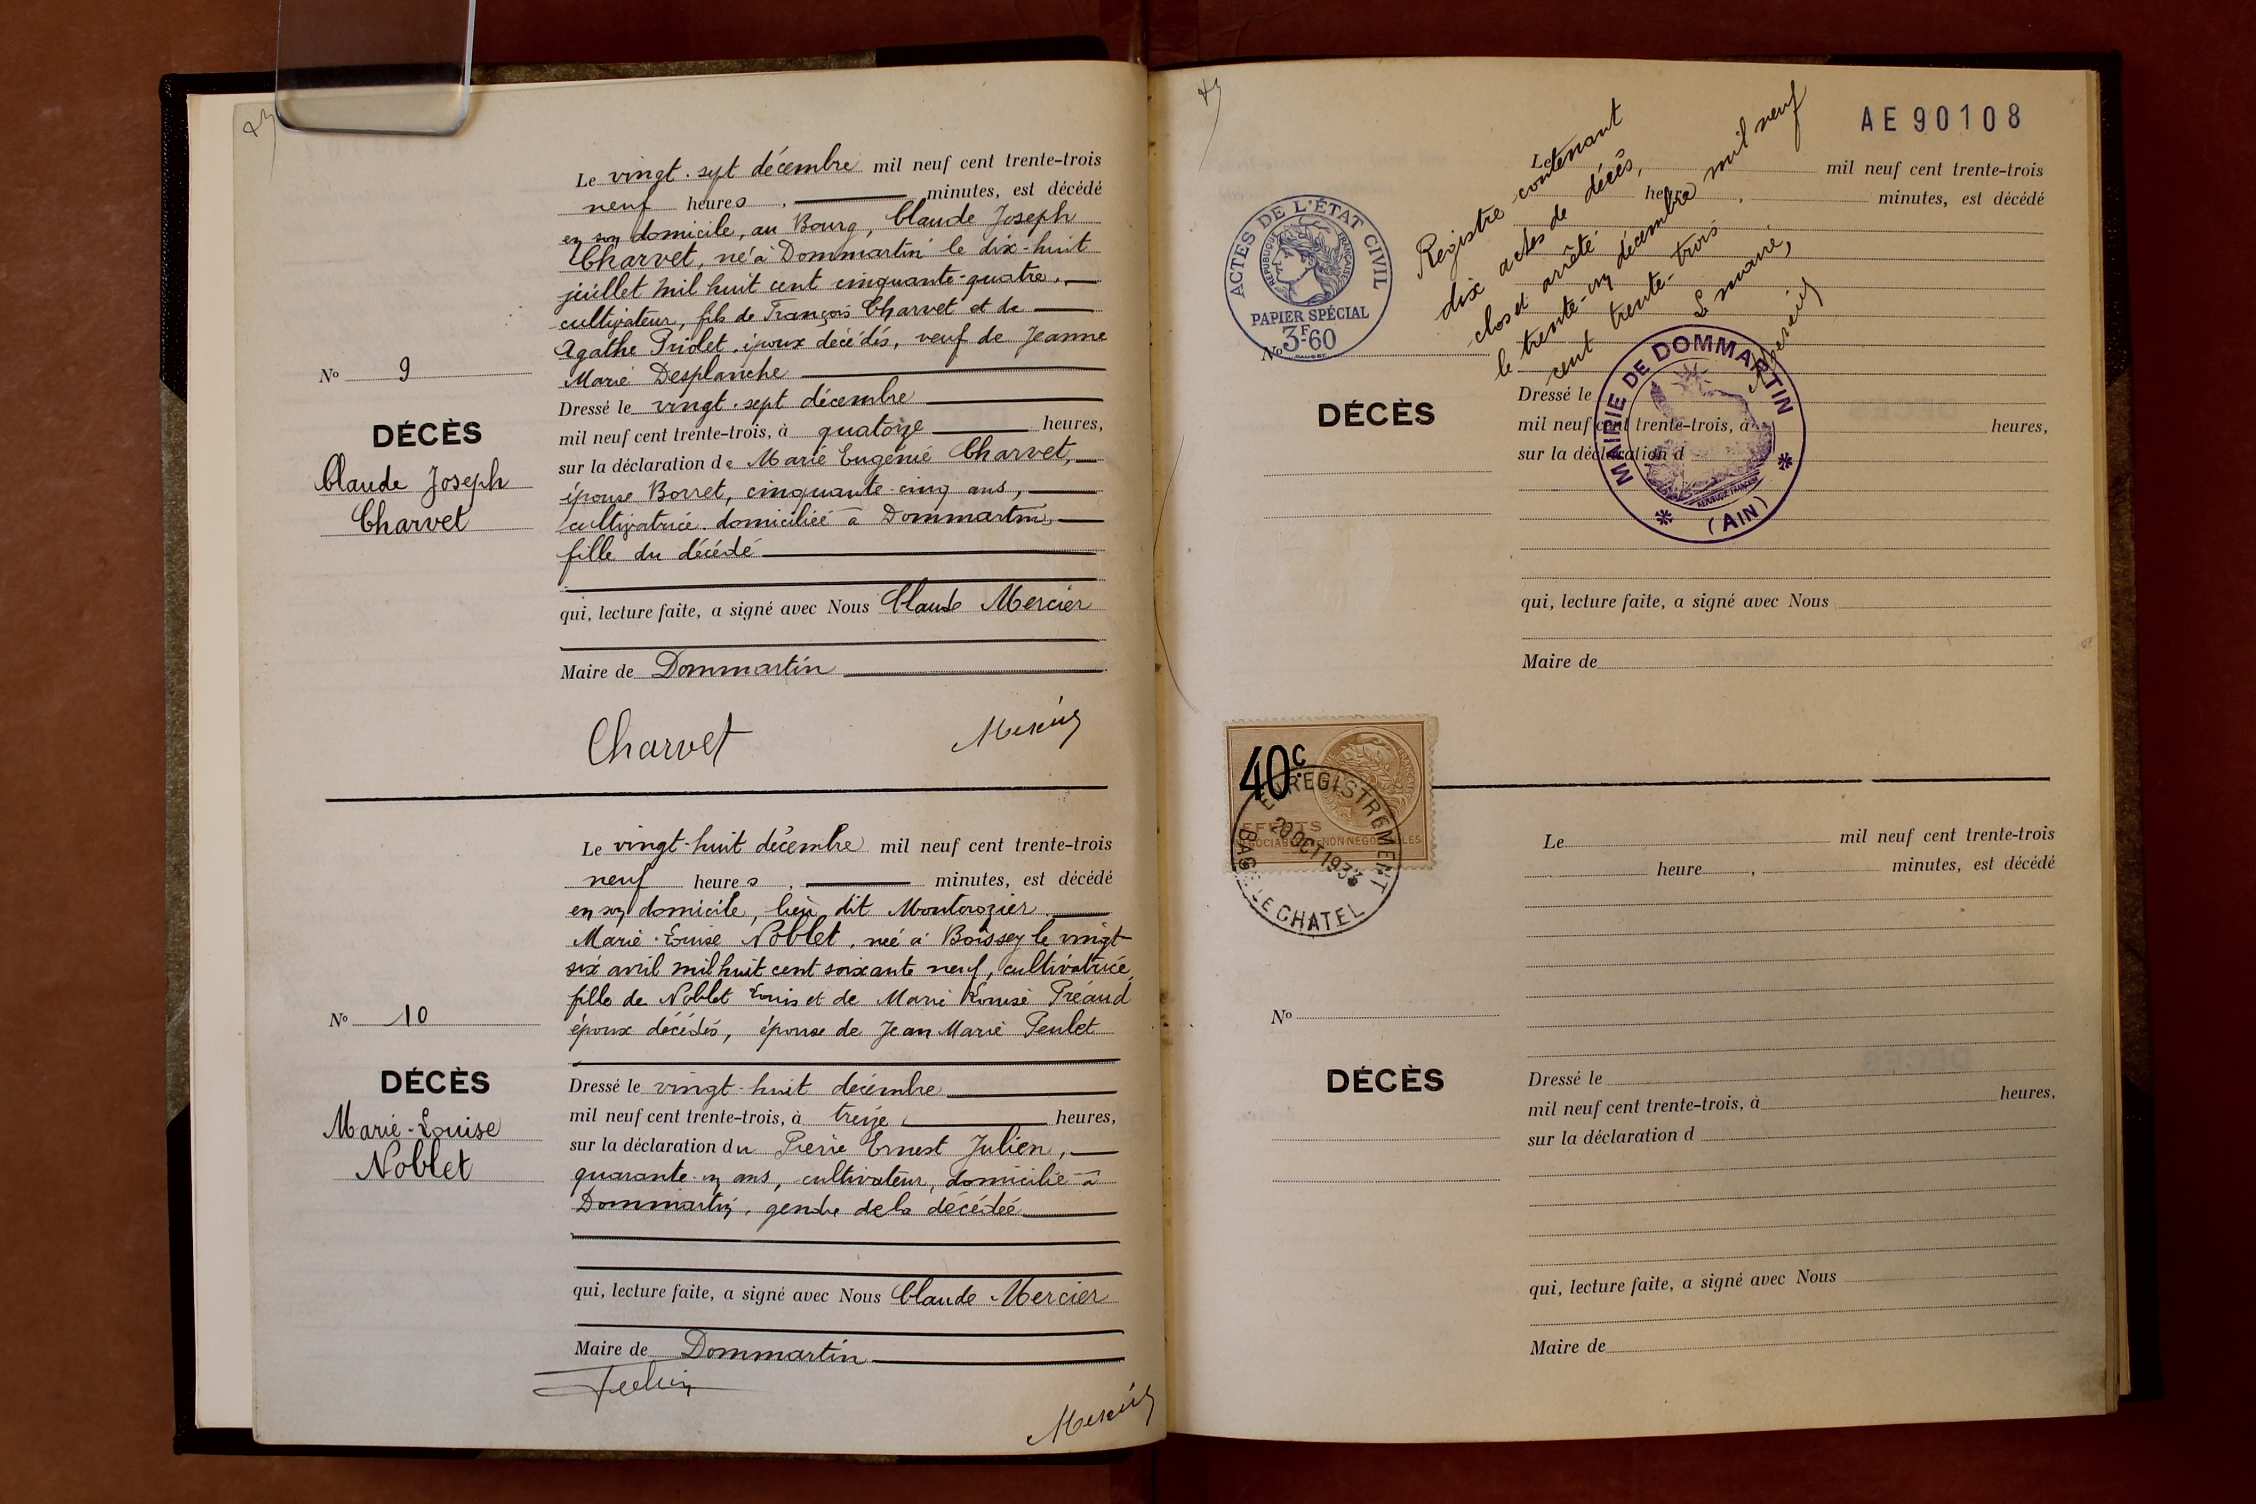 Le vingt-sept décembre mil neuf cent trente-trois
neuf heures , minutes, est décédé
en son domicile, au Bourg, Claude Joseph
Charvet, né à Dommartin le dix-huit
juillet mil huit cent cinquante-quatre,
cultivateur, fils de François Charvet et de
Agathe Priolet, époux décédés, veuf de Jeanne
Marie Desplanche
Dressé le vingt-sept décembre
mil neuf cent trente-trois, à quatorze heures,
sur la déclaration de Marie Eugénie Charvet,
épouse Borret, cinquante-cinq ans,
cultivatrice domiciliée à Dommartin,
fille du décédé
qui, lecture faite, a signé avec Nous Claude Mercier
Maire de Dommartin
Charvet Mercier
No 9
DÉCÈS
Claude Joseph
Charvet
Le vingt-huit décembre mil neuf cent trente-trois
neuf heures , minutes, est décédé
en son domicile, lieu dit Montcrozier
Marie-Louise Noblet, née à Boissey le vingt
six avril mil huit cent soixante neuf, cultivatrice,
fille de Noblet Louis et de Marie Louise Préaud
époux décédés, épouse de Jean Marie Peulet
Dressé le vingt-huit décembre
mil neuf cent trente-trois, à treize heures,
sur la déclaration du Pierre Ernest Julien,
quarante-un ans, cultivateur, domicilié à
Dommartin, gendre de la décédée
qui, lecture faite, a signé avec Nous Claude Mercier
Maire de Dommartin
Julien
Mercier
No 10
DÉCÈS
Marie-Louise
Noblet
AE 90108
Registre contenant
dix actes de décès,
clos et arrêté
le trente-un décembre mil neuf
cent trente-trois
Le maire,
Mercier
ACTES DE L'ÉTAT CIVIL
RÉPUBLIQUE FRANÇAISE
PAPIER SPÉCIAL
3F60
Le mil neuf cent trente-trois
heure , minutes, est décédé
No
DÉCÈS
Dressé le
mil neuf cent trente-trois, à heures,
sur la déclaration d
MAIRIE DE DOMMARTIN
RÉPUBLIQUE FRANÇAISE
(AIN)
qui, lecture faite, a signé avec Nous
Maire de
40c
EFFETS
NON NÉGOCIABLES
ENREGISTREMENT
20 OCT 1933
BAGE-LE CHATEL
Le mil neuf cent trente-trois
heure , minutes, est décédé
No
DÉCÈS
Dressé le
mil neuf cent trente-trois, à heures,
sur la déclaration d
qui, lecture faite, a signé avec Nous
Maire de